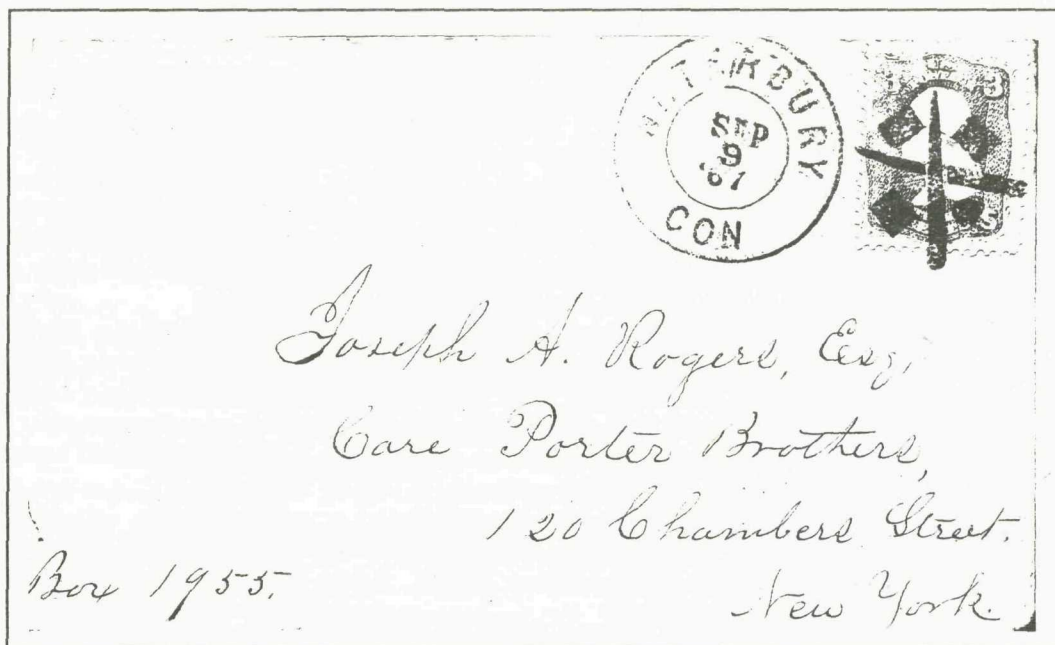 WATERBURY
SEP
9
'67
CON
3
Joseph A. Rogers, Esq,
Care Porter Brothers,
120 Chambers Street.
Box 1955.
New York.